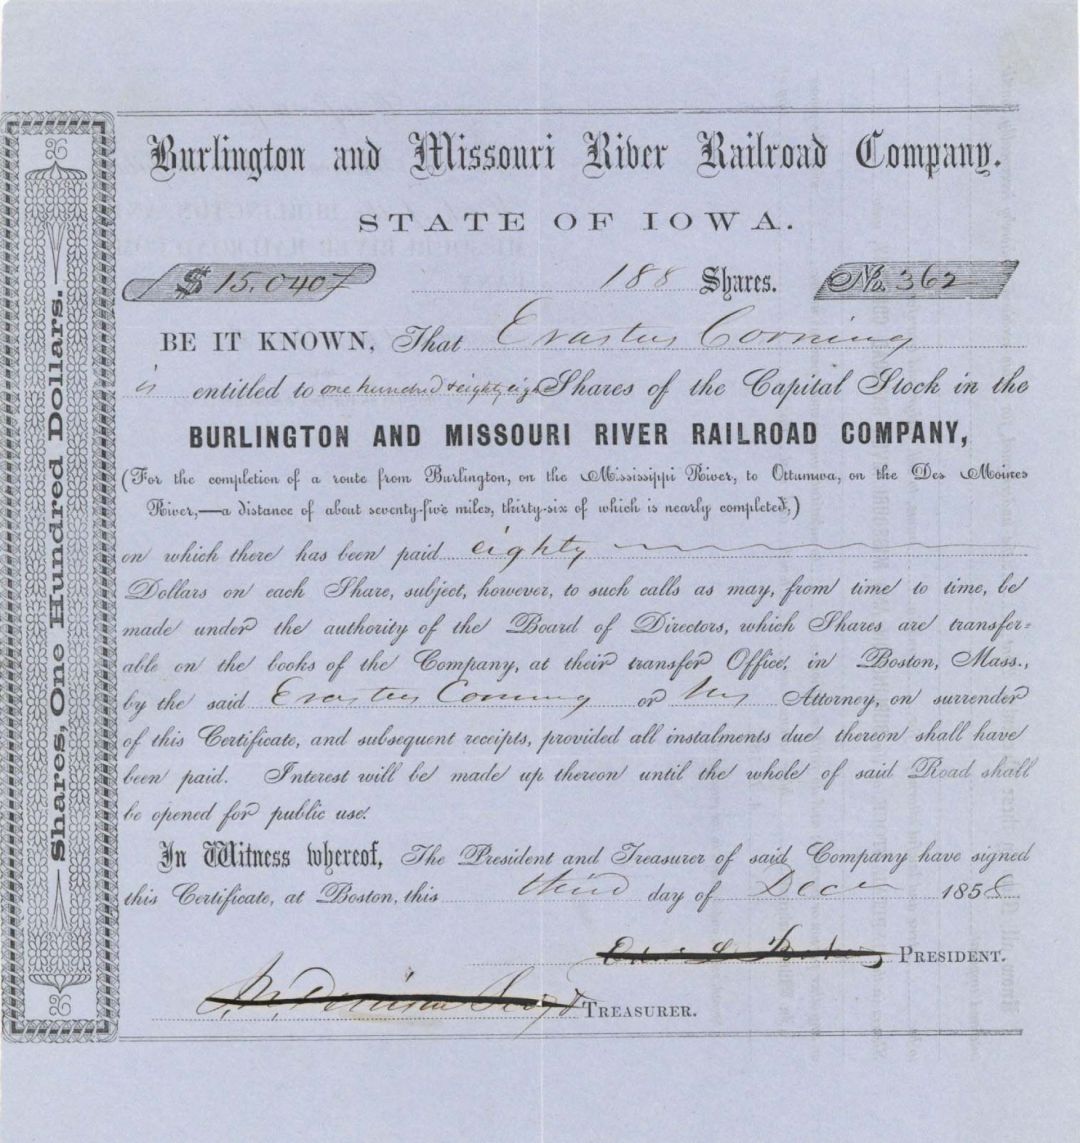 Burlington and Missouri River Railroad Company.
STATE OF IOWA.
$ 15,040 188 Shares. No. 362
BE IT KNOWN, That Erastus Corning
is entitled to one hundred & eighty eight Shares of the Capital Stock in the
BURLINGTON AND MISSOURI RIVER RAILROAD COMPANY,
(For the completion of a route from Burlington, on the Mississippi River, to Ottumwa, on the Des Moines
River,—a distance of about seventy-five miles, thirty-six of which is nearly completed,)
on which there has been paid eighty
Dollars on each Share, subject, however, to such calls as may, from time to time, be
made under the authority of the Board of Directors, which Shares are transfer=
able on the books of the Company, at their transfer Office, in Boston, Mass.,
by the said Erastus Corning or his Attorney, on surrender
of this Certificate, and subsequent receipts, provided all instalments due thereon shall have
been paid. Interest will be made up thereon until the whole of said Road shall
be opened for public use.
In Witness whereof, The President and Treasurer of said Company have signed
this Certificate, at Boston, this third day of Decr 1858
PRESIDENT.
TREASURER.
Shares, One Hundred Dollars.